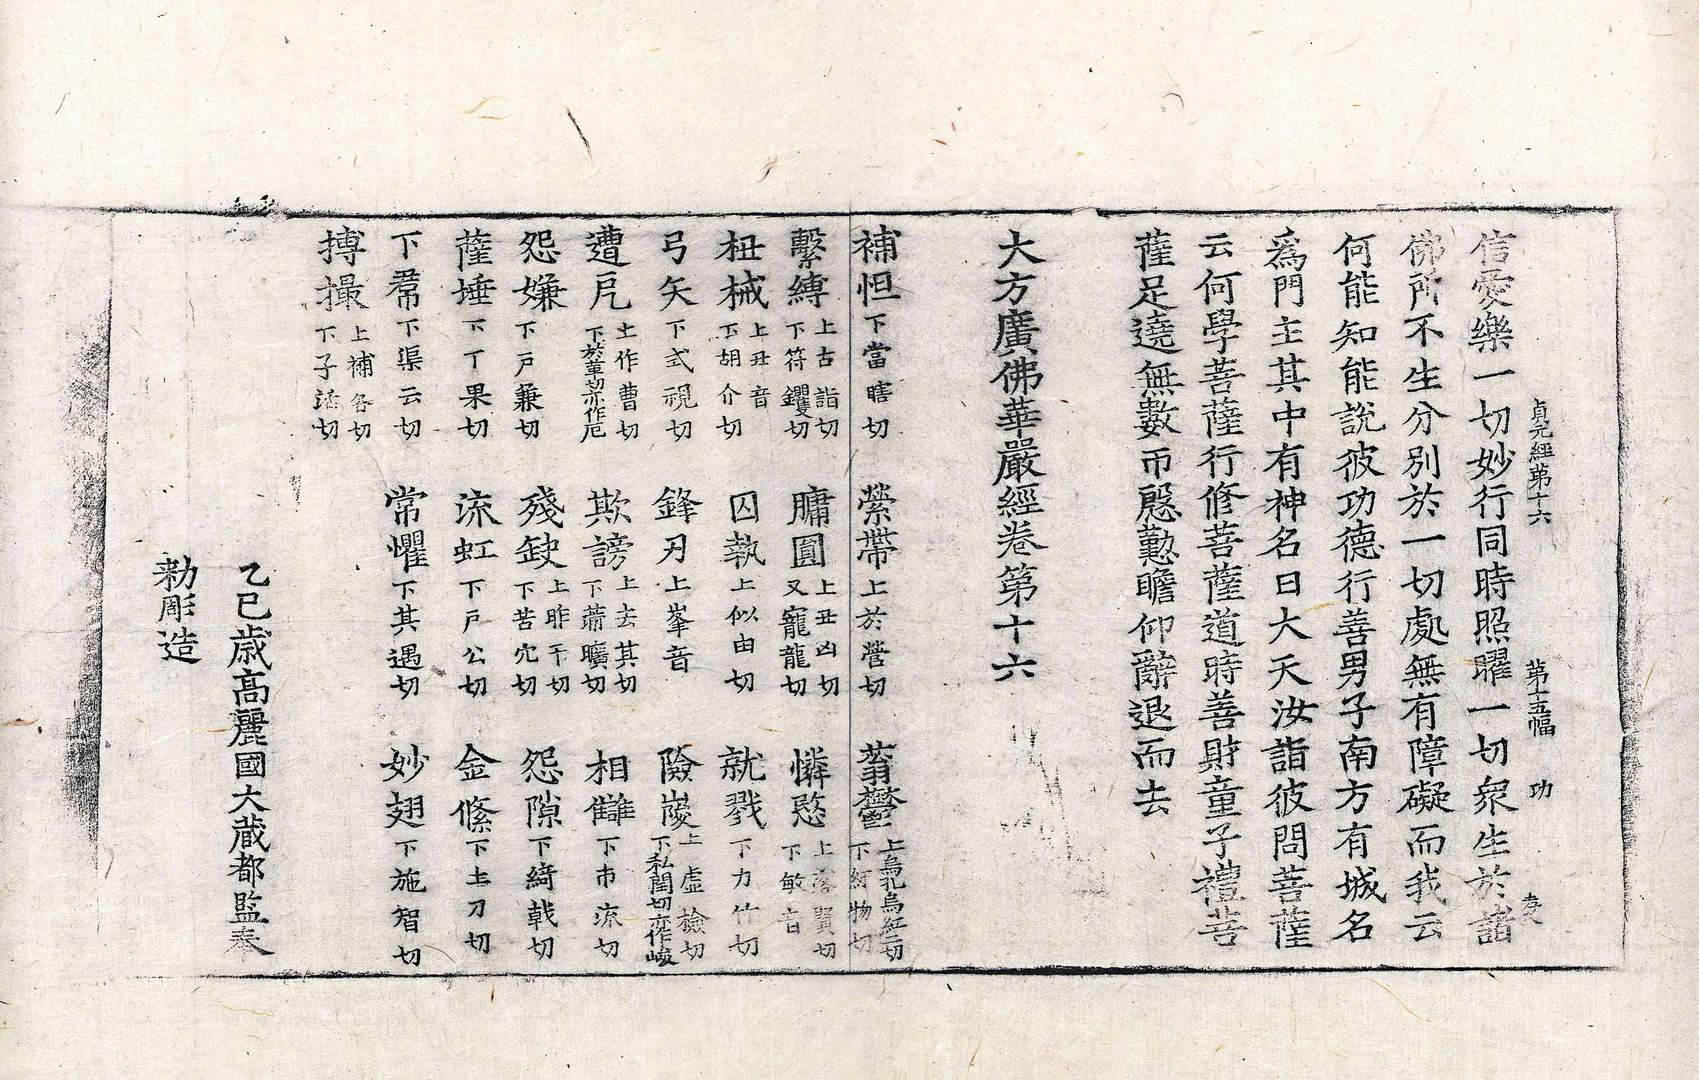 貞元經第十六 第十五幅 功
信愛樂一切妙行同時照曜一切衆生於諸
佛所不生分別於一切處無有障礙而我云
何能知能說彼功德行善男子南方有城名
爲門主其中有神名曰大天汝詣彼問菩薩
云何學菩薩行修菩薩道時善財童子禮菩
薩足遶無數帀慇懃瞻仰辭退而去
大方廣佛華嚴經卷第十六
補怛下當曷切 縈帶上於營切 蓊鬱上烏孔烏紅二切下紆物切
繫縛上古詣切下符钁切 𦟛圓上丑凶切又寵龍切 憐愍上落賢切下敏音
杻械上丑音下胡介切 囚執上似由切 就戮下力竹切
弓矢下式視切 鋒刃上峯音 險𡺲上虛檢切下私閏切亦作峻
遭戹上作曹切下於革切亦作厄 欺謗上去其切下補曠切 相讎下市流切
怨嫌下戸兼切 殘缺上昨干切下苦穴切 怨隙下綺戟切
薩埵下丁果切 流虹下戸公切 金絛下土刀切
下帬下渠云切 常懼下其遇切 妙翅下施智切
搏撮上補各切下子括切
乙巳歳高麗國大藏都監奉
勅彫造